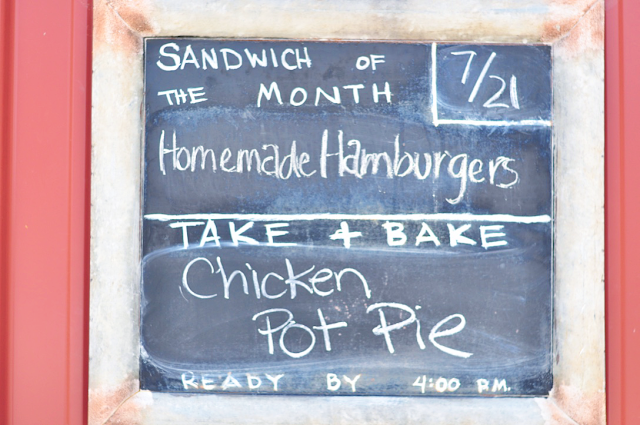 SANDWICH OF
THE MONTH
7/21
Homemade Hamburgers
TAKE + BAKE
Chicken
Pot Pie
READY BY 4:00 P.M.